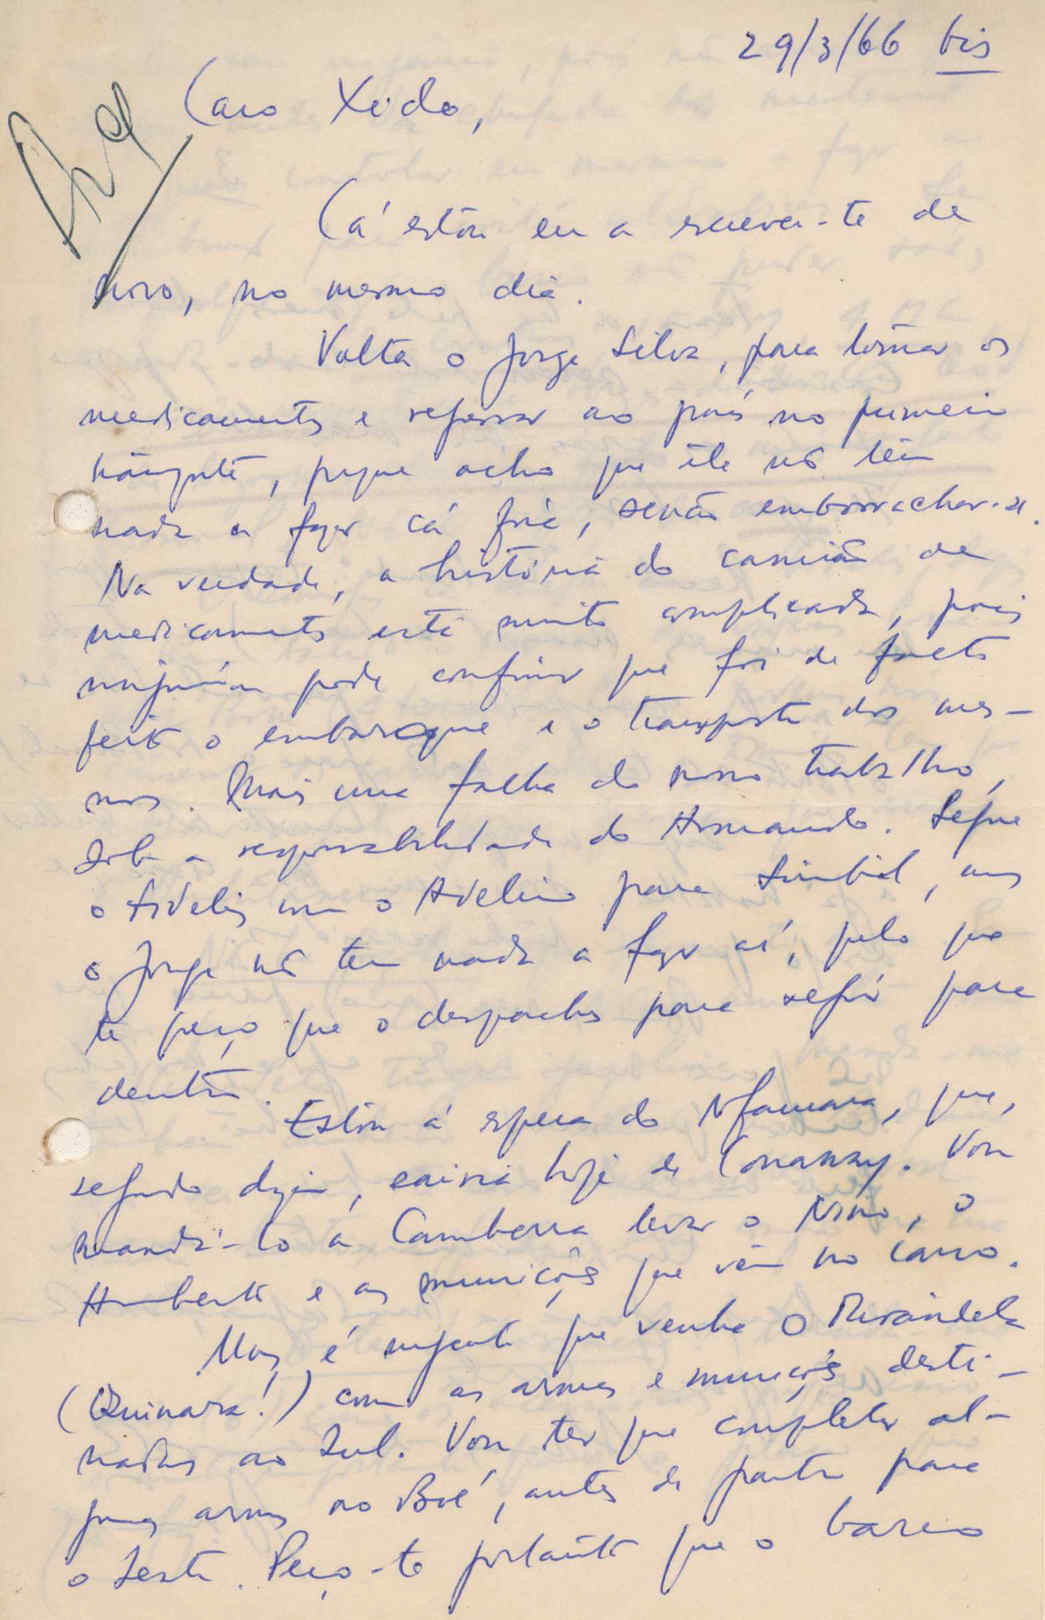 29/3/66 bis
Caro Xido,
Cá estou eu a escrever-te de
novo, no mesmo dia.
Volta o Jorge Silva, para tomar os
medicamentos e regressar ao país no primeiro
transporte, porque acho que êle não tem
nada a fazer cá fora, senão emborrachar-se.
Na verdade, a história do camião de
medicamentos está muito complicada, pois
ninguém pode confirmar que foi de facto
feito o embarque e o transporte dos mes-
mos. Mais uma falha do nosso trabalho,
sob a responsabilidade do Armando. Segue
o Fidelis com o Adelino para Simbel, mas
o Jorge não tem nada a fazer aí, pelo que
te peço que o despaches para seguir para
dentro.
Estou á espera do Nfamara, que,
segundo dizem, sairia hoje de Conakry. Vou
mandá-lo a Camberra levar o Nino, o
Humberto e as munições que vêm no carro.
Mas é urgente que venha o Mirandela
(Quinara!) com as armas e munições desti-
nadas ao Sul. Vou ter que completar al-
gumas armas no Boé, antes de partir para
o Leste. Peço-te portanto que o barco